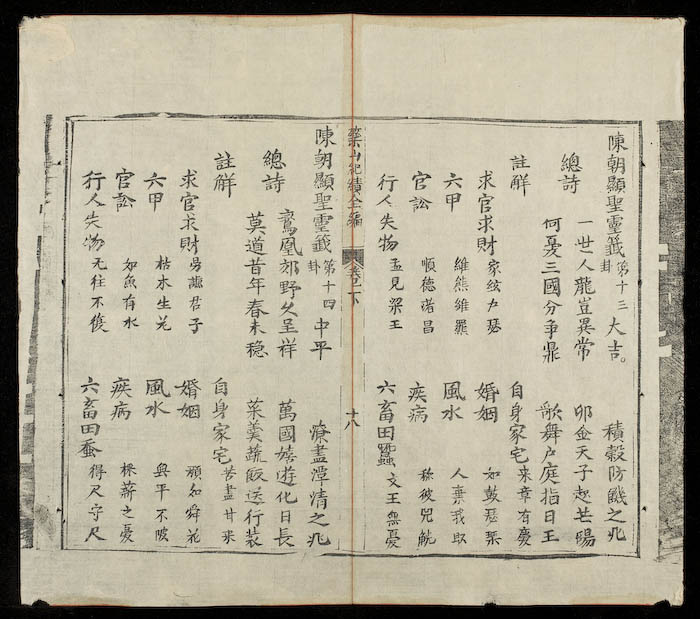 陳朝顯聖靈籤 第十三卦 大吉。 積穀防饑之兆
總詩 一世人龍豈異常 卯金天子起芒碭
何憂三國分爭鼎 歌舞戶庭指日王
註解 自身家宅 來章有慶
求官求財 家絃戶瑟 婚姻 如鼓瑟琴
六甲 維熊維羆 風水 人棄我取
官訟 順德諾昌 疾病 称彼兕觥
行人失物 孟見梁王 六畜田蠶 文王無憂
藥山紀績全編 卷之一下 十八
陳朝顯聖靈籤 第十四卦 中平 潦盡潭清之兆
總詩 鸞凰郊野久呈祥 萬國嬉遊化日長
莫道昔年春未穩 菜羮蔬飯送行裝
註解 自身家宅 苦盡甘來
求官求財 勞謙君子 婚姻 顔如舜花
六甲 枯木生花 風水 無平不陂
官訟 如魚有水 疾病 採薪之憂
行人失物 无往不復 六畜田蚕 得尺守尺